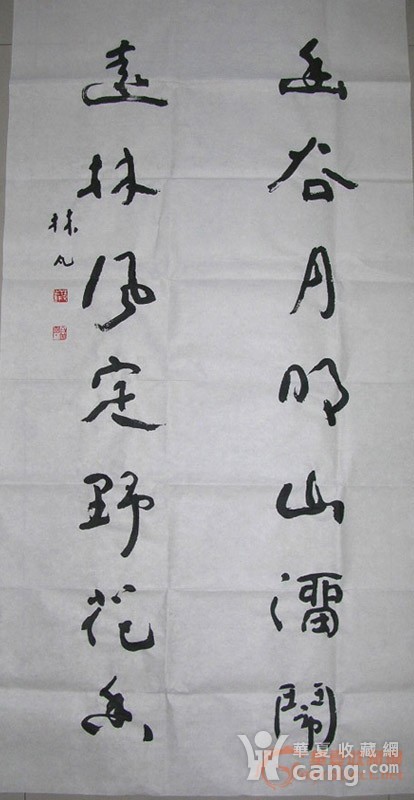 幽谷月明山溜鬧
遠林風定野花香
林凡
華夏收藏網
cang.com